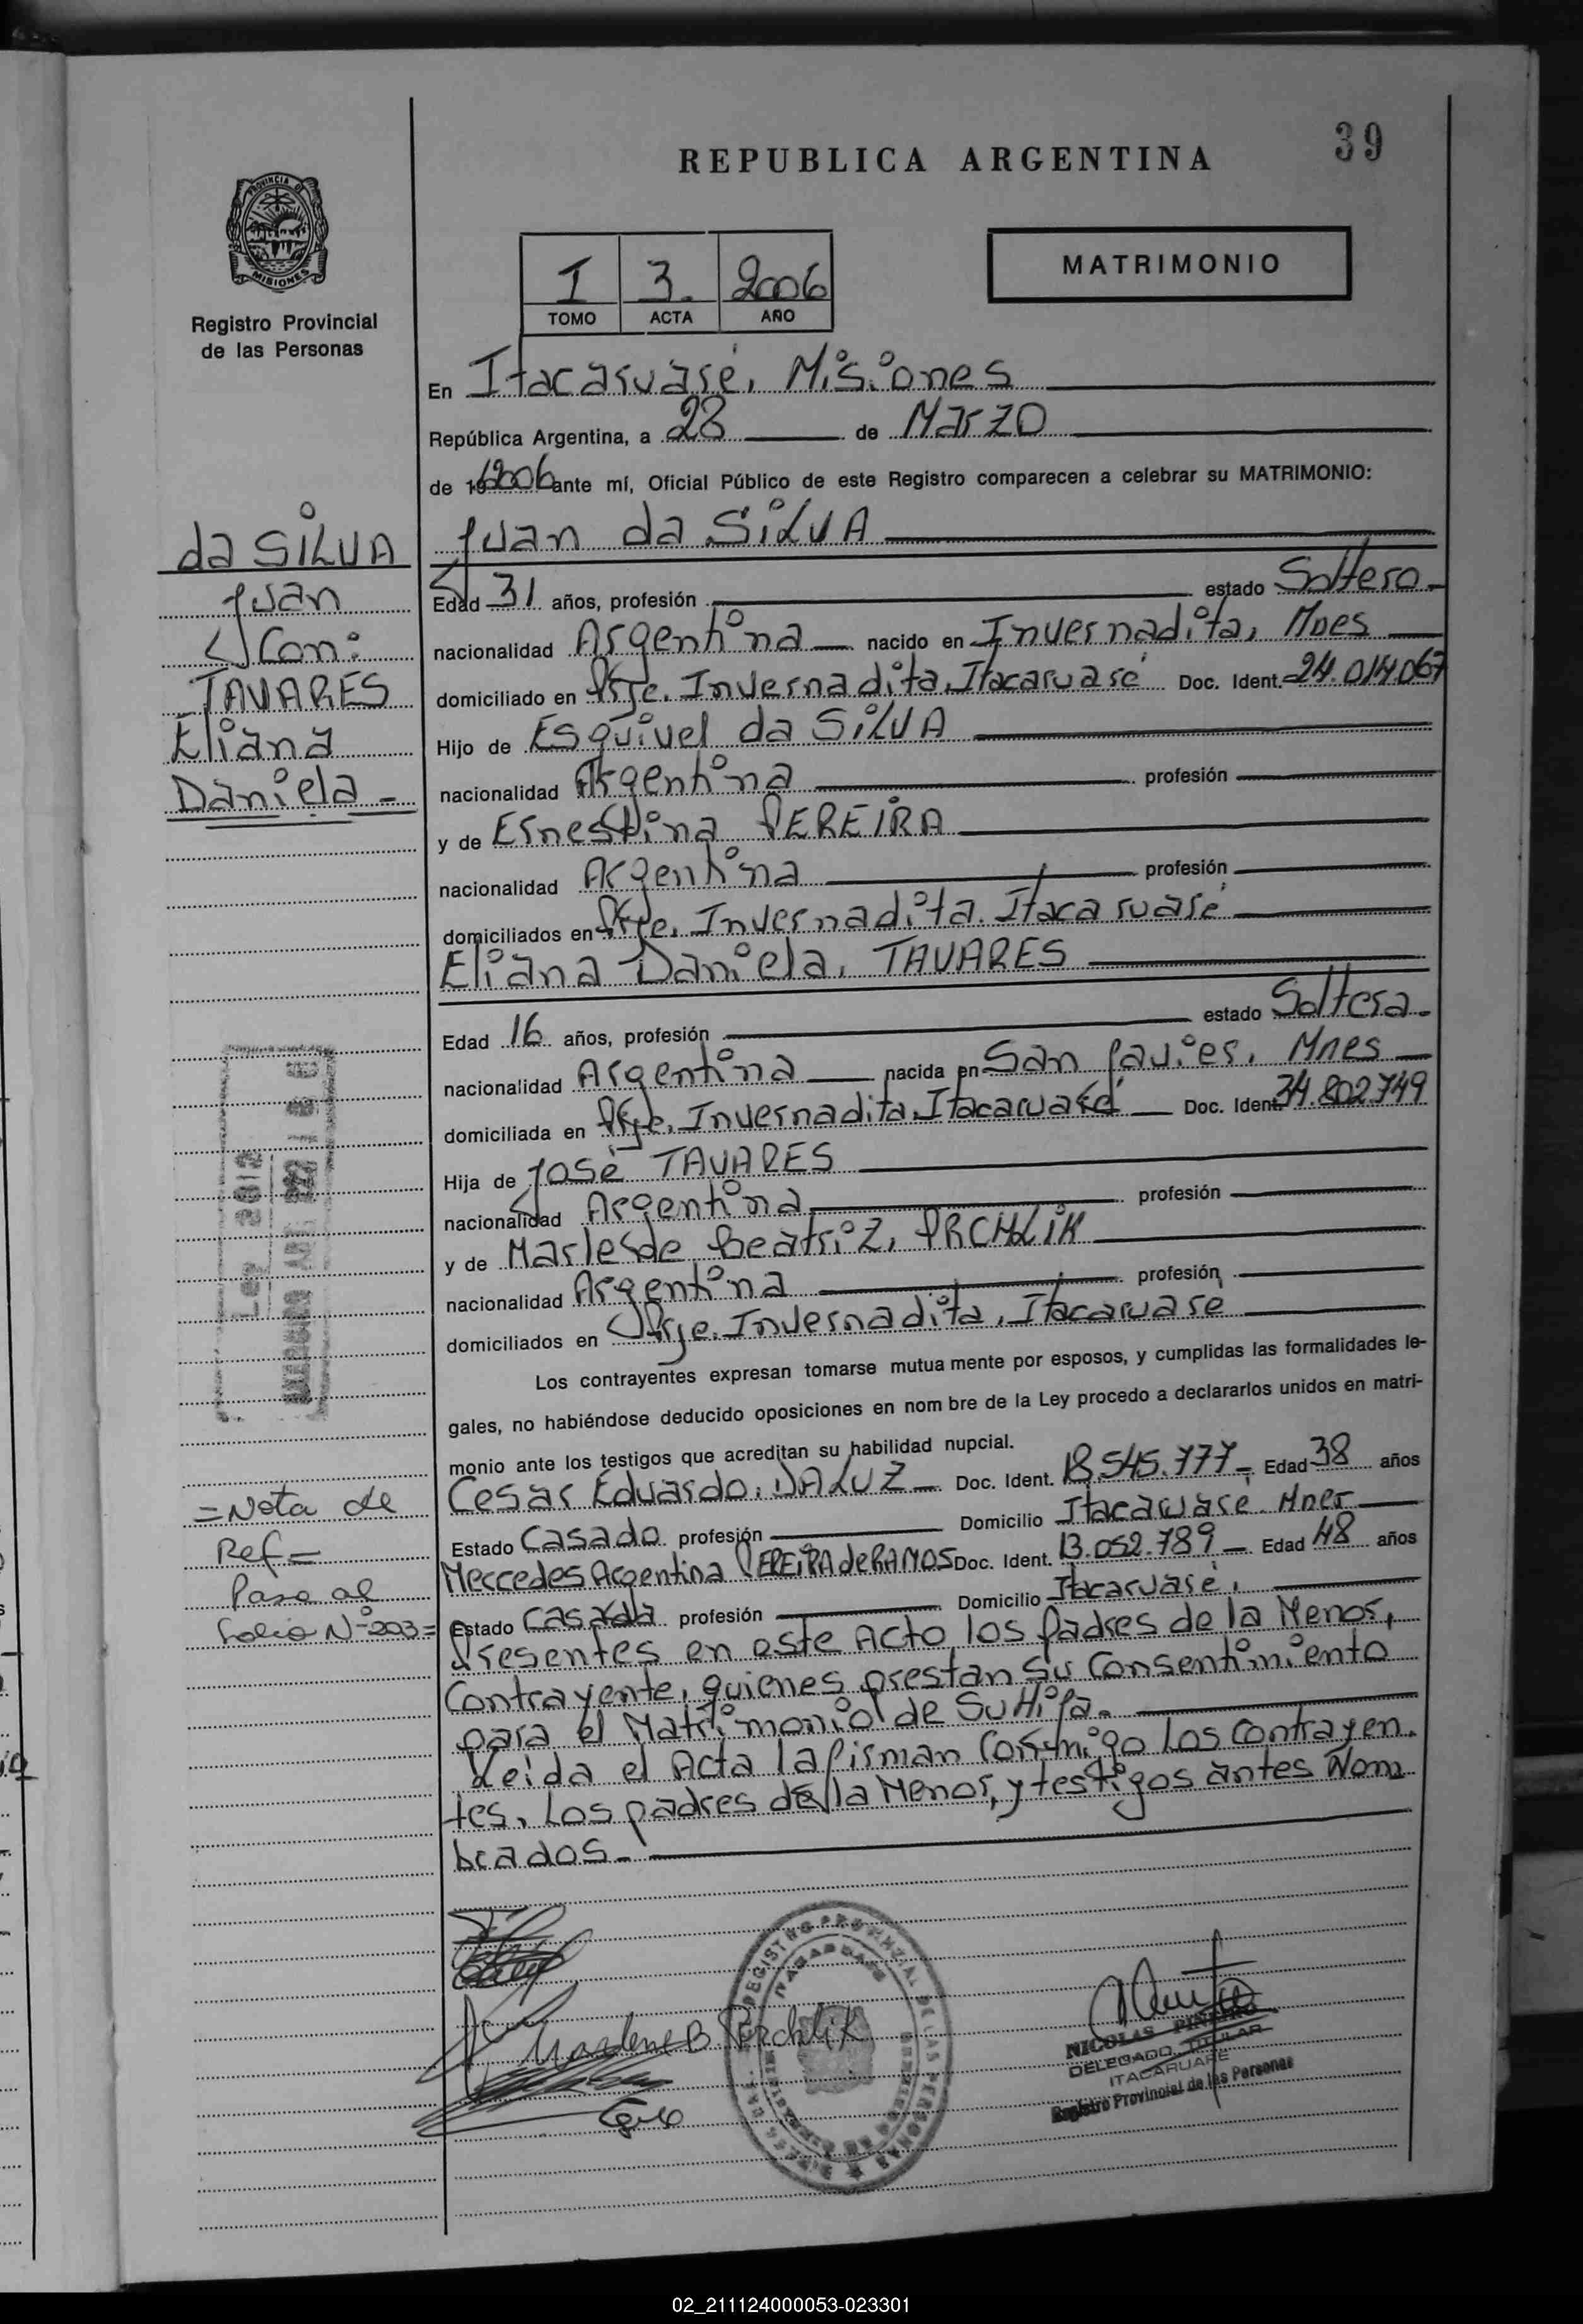 39
REPUBLICA ARGENTINA
PROVINCIA DE
MISIONES
Registro Provincial
de las Personas
I 3. 2006
TOMO ACTA AÑO
MATRIMONIO
En Itacaruaré, Misiones
República Argentina, a 28 de Marzo
de 19 2006 ante mí, Oficial Público de este Registro comparecen a celebrar su MATRIMONIO:
da SILVA
Juan
Con:
TAVARES
Eliana
Daniela -
Juan da SILVA
Edad 31 años, profesión estado Soltero -
nacionalidad Argentina nacido en Invernadita, Mnes
domiciliado en Prje. Invernadita, Itacaruaré Doc. Ident. 24.014.067
Hijo de Esquivel da SILVA
nacionalidad Argentina profesión
y de Ernestina PEREIRA
nacionalidad Argentina profesión
domiciliados en Prje, Invernadita. Itacaruaré
Eliana Daniela, TAVARES
Edad 16 años, profesión estado Soltera -
nacionalidad Argentina nacida en San Javier, Mnes
domiciliada en Prje, Invernadita, Itacaruaré Doc. Ident. 34.802.749
Hija de José TAVARES
nacionalidad Argentina profesión
y de Marlesde Beatriz, PRCHLIK
nacionalidad Argentina profesión
domiciliados en Prje. Invernadita, Itacaruaré
Los contrayentes expresan tomarse mutua mente por esposos, y cumplidas las formalidades le-
gales, no habiéndose deducido oposiciones en nom bre de la Ley procedo a declararlos unidos en matri-
monio ante los testigos que acreditan su habilidad nupcial.
Cesar Eduardo, DA LUZ Doc. Ident. 18.545.777 - Edad 38 años
Estado Casado profesión Domicilio Itacaruaré. Mnes
Mercedes Argentina PEREIRA de RAMOS Doc. Ident. 13.052.789 - Edad 48 años
Estado Casada profesión Domicilio Itacaruaré,
Presentes en este Acto, los Padres de la Menor,
Contrayente, quienes prestan su Consentimiento
para el Matrimonio de Su Hija.
Leida el Acta la firman Conmigo Los Contrayen.
tes, Los padres de la Menor, y testigos antes Nom
brados -
= Nota de
Ref =
Pasa al
Folio Nº 203 =
Ley 2012
Marlene B. Perchlik
NICOLAS PIÑEIRO
DELEGADO TITULAR
ITACARUARE
Registro Provincial de las Personas
02_211124000053-023301